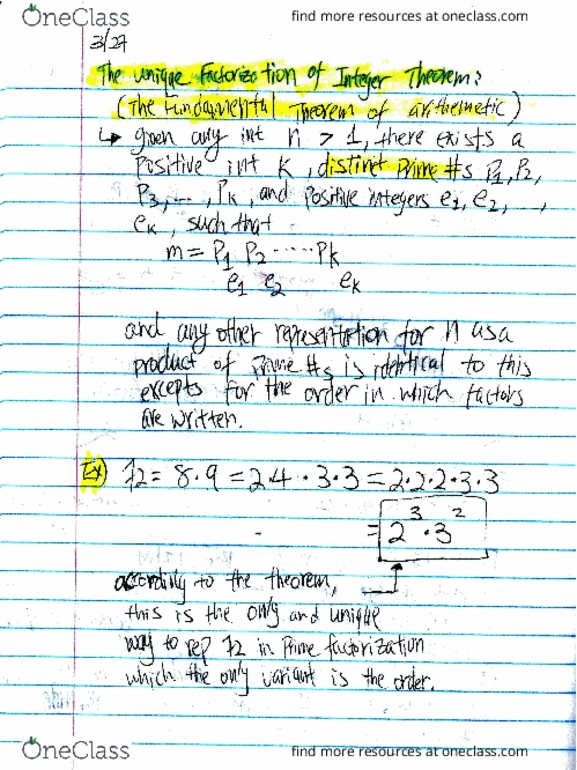 OneClass
find more resources at oneclass.com
3/27
The unique Factorization of Integer Theorem:
(The Fundamental Theorem of arithmetic)
↳ given any int n > 1, there exists a
positive int k, distinct prime #s P1, P2,
P3, ..., Pk, and positive integers e1, e2, ...,
ek, such that
m = P1 P2 ...... Pk
e1 e2 ek
and any other representation for n as a
product of prime #s is identical to this
excepts for the order in which factors
are written.
Ex) 72 = 8·9 = 2·4 · 3·3 = 2·2·2·3·3
= 2³·3²
according to the theorem,
this is the only and unique
way to rep 72 in prime factorization
which the only variant is the order.
OneClass
find more resources at oneclass.com